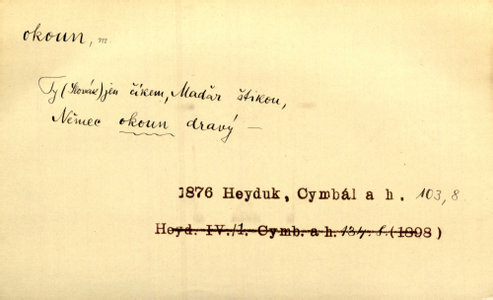 okoun, m
Ty (Slovák) jen číkem, Maďar štikou,
Němec okoun dravý —
1876 Heyduk, Cymbál a h. 103, 8
Heyd. IV./1. Cymb. a h. 134. 8. (1898)